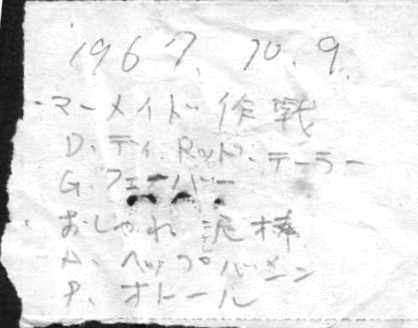 1967. 10. 9.
・マーメイド作戦
D. デイ. Rッド. テーラー
G. フェーバー
・おしゃれ泥棒
A. ヘップバーン
P. オトール